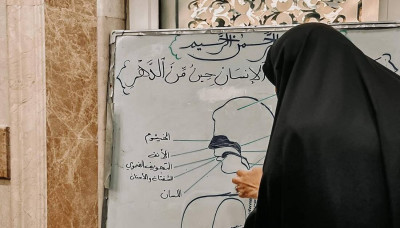 الرحمن الرحيم
الإنسان حينٌ مِّنَ ٱلدَّهْرِ
الخيشوم
الأنف
التجويف الفموي
الشفتان والأسنان
اللسان